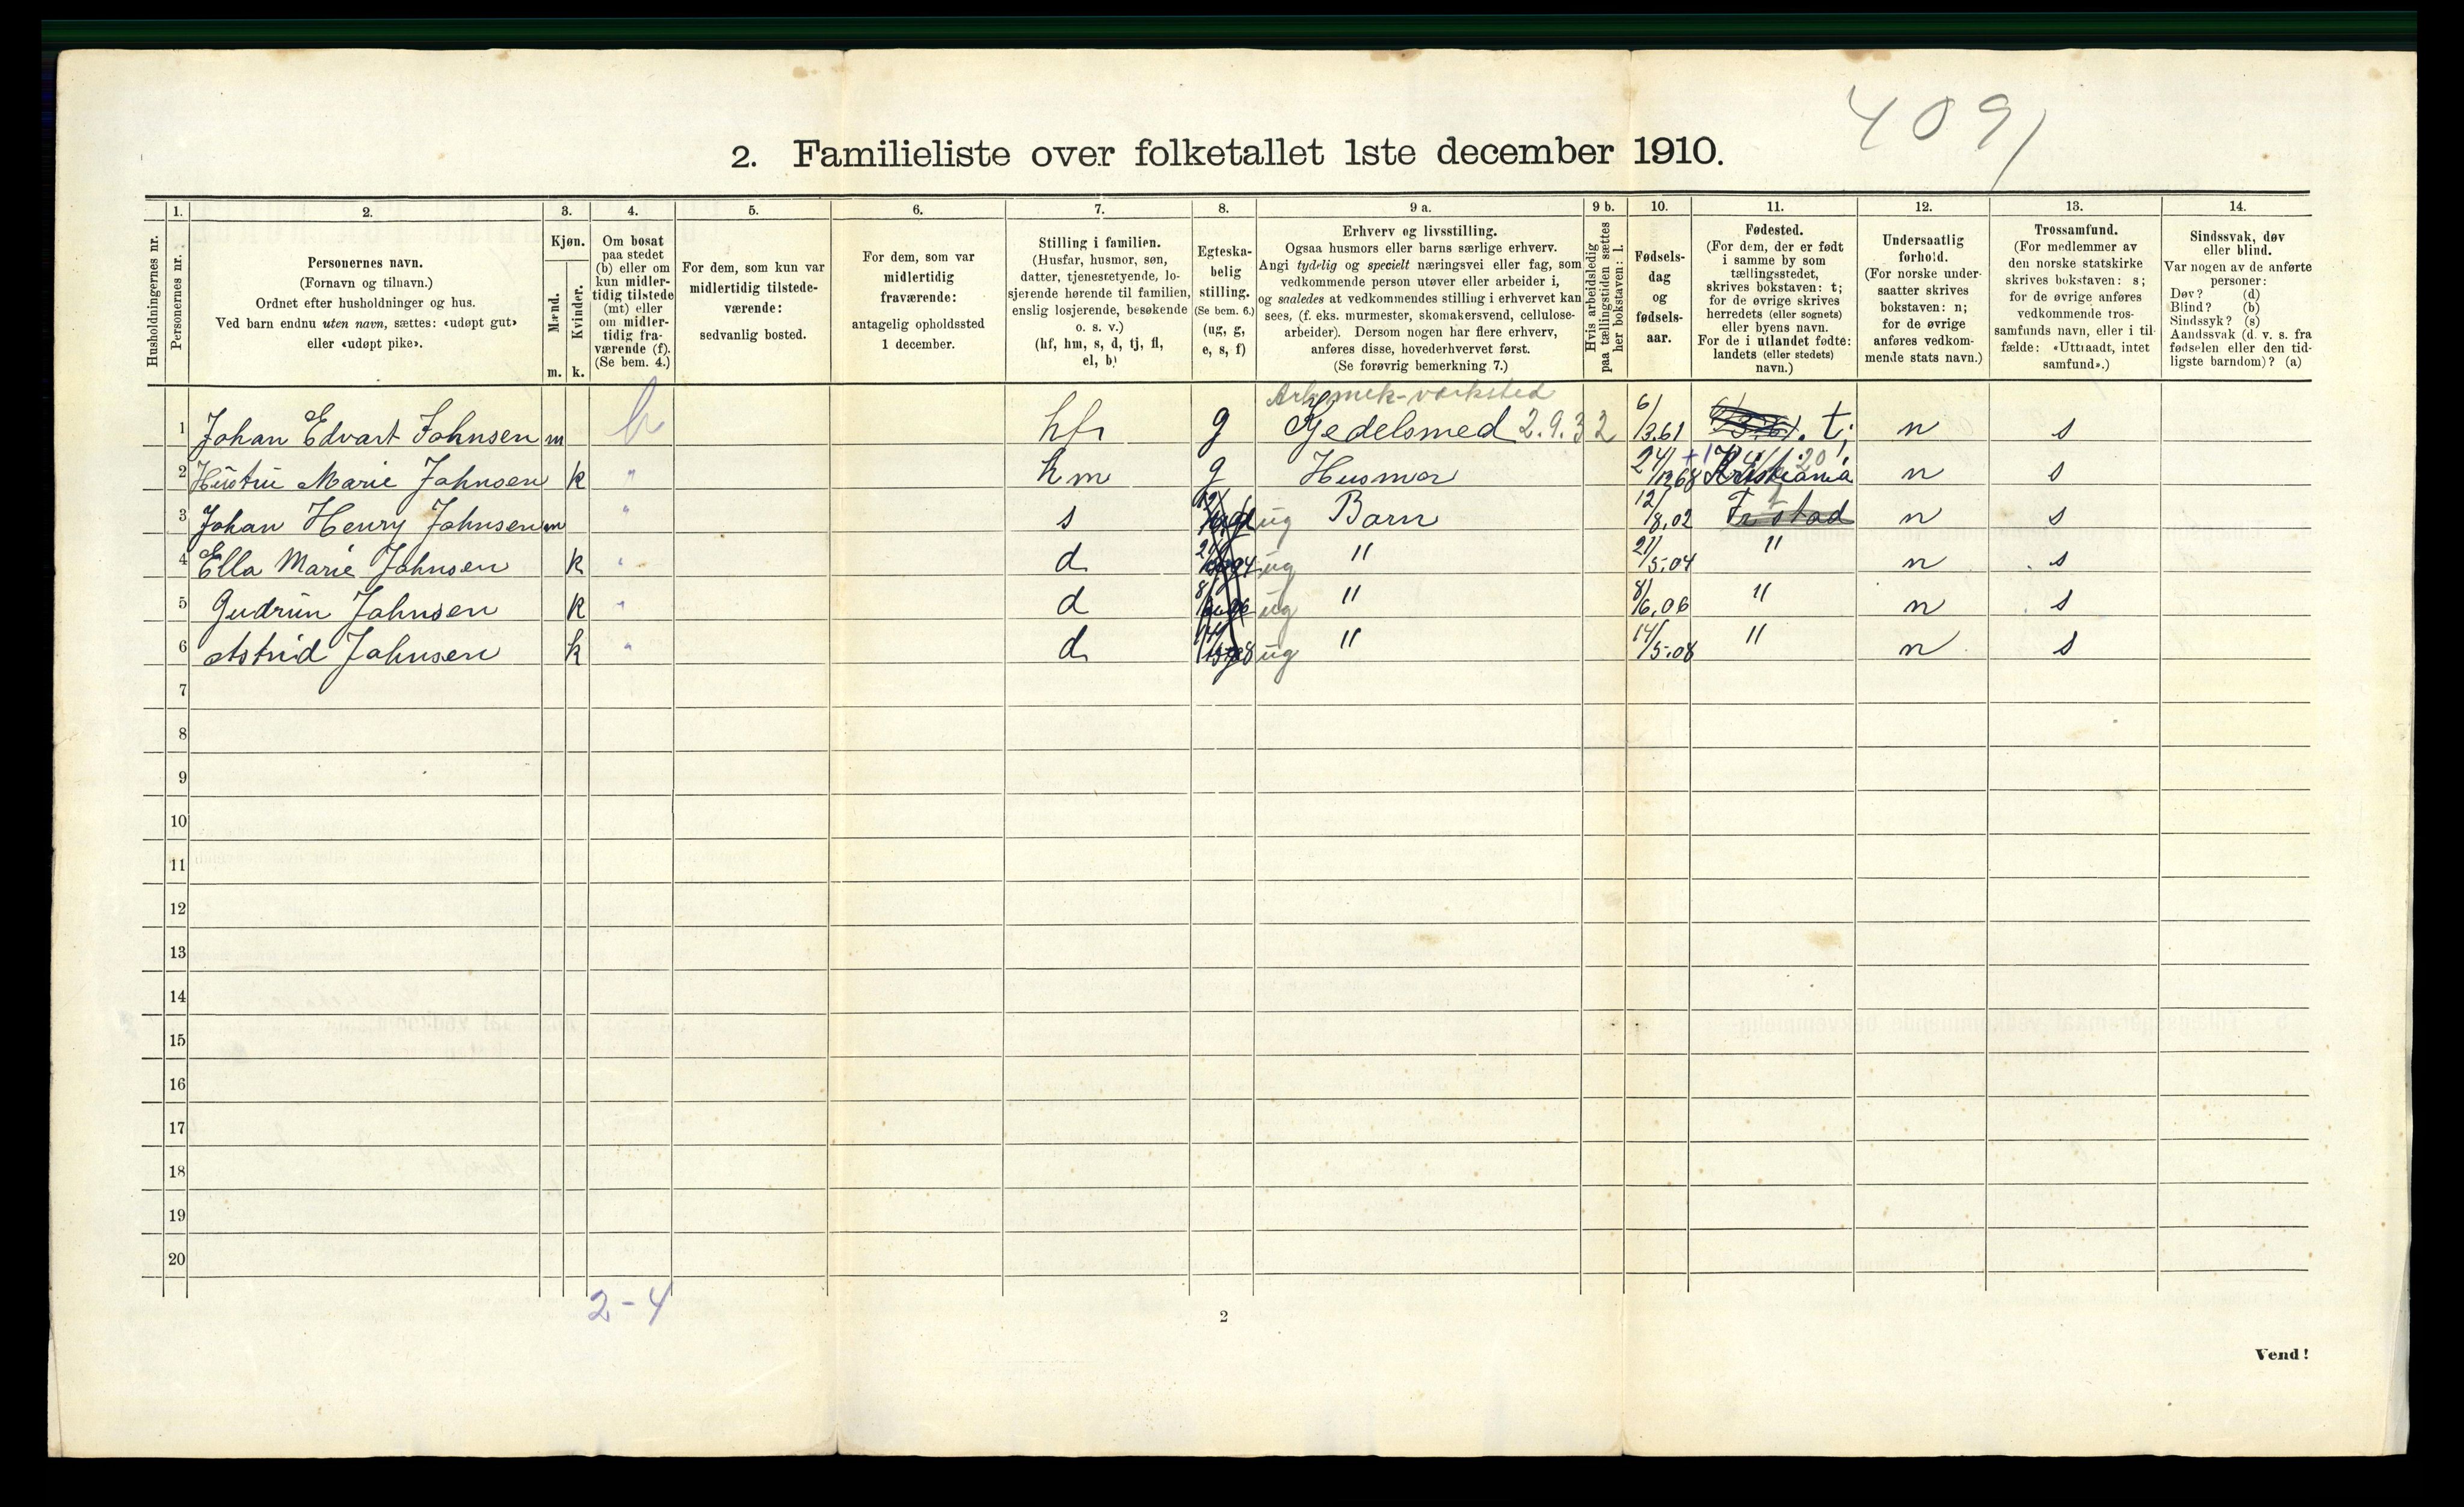 4091
2. Familieliste over folketallet 1ste december 1910.
1. 2. 3. 4. 5. 6. 7. 8. 9 a. 9 b. 10. 11. 12. 13. 14.
Husholdningernes nr.
Personernes nr.
Personernes navn.
(Fornavn og tilnavn.)
Ordnet efter husholdninger og hus.
Ved barn endnu uten navn, sættes: «udøpt gut»
eller «udøpt pike».
Kjøn.
Mænd.
Kvinder.
m. k.
Om bosat
paa stedet
(b) eller om
kun midler-
tidig tilstede
(mt) eller
om midler-
tidig fra-
værende (f).
(Se bem. 4.)
For dem, som kun var
midlertidig tilstede-
værende:
sedvanlig bosted.
For dem, som var
midlertidig
fraværende:
antagelig opholdssted
1 december.
Stilling i familien.
(Husfar, husmor, søn,
datter, tjenestetyende, lo-
sjerende hørende til familien,
enslig losjerende, besøkende
o. s. v.)
(hf, hm, s, d, tj, fl,
el, b)
Egteska-
belig
stilling.
(Se bem. 6.)
(ug, g,
e, s, f)
Erhverv og livsstilling.
Ogsaa husmors eller barns særlige erhverv.
Angi tydelig og specielt næringsvei eller fag, som
vedkommende person utøver eller arbeider i,
og saaledes at vedkommendes stilling i erhvervet kan
sees, (f. eks. murmester, skomakersvend, cellulose-
arbeider). Dersom nogen har flere erhverv,
anføres disse, hovederhvervet først.
(Se forøvrig bemerkning 7.)
Hvis arbeidsledig
paa tællingstiden sættes
her bokstaven: l.
Fødsels-
dag
og
fødsels-
aar.
Fødested.
(For dem, der er født
i samme by som
tællingsstedet,
skrives bokstaven: t;
for de øvrige skrives
herredets (eller sognets)
eller byens navn.
For de i utlandet fødte:
landets (eller stedets)
navn.)
Undersaatlig
forhold.
(For norske under-
saatter skrives
bokstaven: n;
for de øvrige
anføres vedkom-
mende stats navn.)
Trossamfund.
(For medlemmer av
den norske statskirke
skrives bokstaven: s;
for de øvrige anføres
vedkommende tros-
samfunds navn, eller i til-
fælde: «Uttraadt, intet
samfund».)
Sindssvak, døv
eller blind.
Var nogen av de anførte
personer:
Døv? (d)
Blind? (b)
Sindssyk? (s)
Aandssvak (d. v. s. fra
fødselen eller den tid-
ligste barndom)? (a)
Arb. mek-værksted
1 Johan Edvart Johnsen m b hf g Kjedelsmed 2.9.3 2 6/3.61 t; n s
2 Hustru Marie Johnsen k " hm g Husmor 24/12.68 Kristiania n s
3 Johan Henry Johnsen m " s ug Barn 12/8.02 Fr stad n s
4 Ella Marie Johnsen k " d ug " 21/5.04 " n s
5 Gudrun Johnsen k " d ug " 8/6.06 " n s
6 Astrid Johnsen k " d ug " 14/5.08 " n s
7
8
9
10
11
12
13
14
15
16
17
18
19
20
2-4
2
Vend!